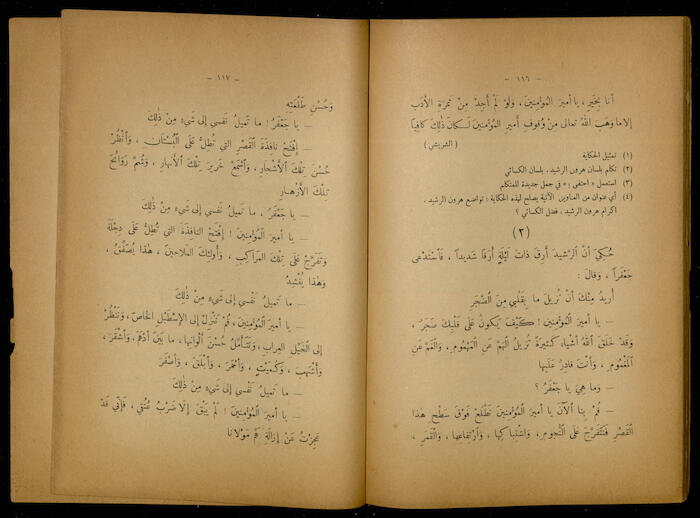 - ١١٦ -
أنا بِخَيْرٍ، يا أميرَ المُؤمِنينَ، وَلَوْ لَمْ أَجِدْ مِنْ ثَمَرَةِ الأَدَبِ
إلا ما وَهَبَ اللهُ تعالى مِنْ وُقوفِ أميرِ المُؤْمِنينَ لَكانَ ذٰلِكَ كافِيًا
(الشريشي)
(١) تمثيل الحكاية
(٢) تكلم بلسان هرون الرشيد، بلسان الكسائي
(٣) استعمل « احتفى به » في جمل جديدة للمتكلم
(٤) أي عنوان من العناوين الآتية يصلح لهذه الحكاية : تواضع هرون الرشيد .
اكرام هرون الرشيد . فضل الكسائي ؟
(٢)
حُكِيَ أنَّ الرَّشيدَ أَرِقَ ذاتَ لَيْلَةٍ أَرَقًا شَديدًا ، فَاسْتَدْعى
جَعْفَرًا ، وَقالَ :
أُريدُ مِنْكَ أنْ تُزيلَ ما بِقَلْبي مِنَ الضَّجَرِ
— يا أميرَ المُؤْمِنينَ ! كَيْفَ يَكونُ عَلى قَلْبِكَ ضَجَرٌ ،
وَقَدْ خَلَقَ اللهُ أَشْياءَ كَثيرَةً تُزيلُ الهَمَّ عَنِ المَهْمومِ ، وَالغَمَّ عَنِ
المَغْمومِ ، وَأَنْتَ قادِرٌ عَلَيْها
— وَما هِيَ يا جَعْفَرُ ؟
— قُمْ بِنا الآنَ يا أميرَ المُؤْمِنينَ نَطْلَعْ فَوْقَ سَطْحِ هٰذا
القَصْرِ فَنَتَفَرَّجَ عَلى النُّجومِ ، وَاشْتِباكِها ، وَارْتِفاعِها ، وَالقَمَرِ ،
- ١١٧ -
وَحُسْنِ طَلْعَتِهِ
— يا جَعْفَرُ ! ما تَميلُ نَفْسي إلى شَيْءٍ مِنْ ذٰلِكَ
— إفْتَحْ نافِذَةَ القَصْرِ التي تُطِلُّ عَلى البُسْتانِ ، وَانْظُرْ
حُسْنَ تِلْكَ الأَشْجارِ ، وَاسْمَعْ خَريرَ تِلْكَ الأَنْهارِ ، وَشُمَّ رَوائِحَ
تِلْكَ الأَزْهارِ
— يا جَعْفَرُ ، ما تَميلُ نَفْسي إلى شَيْءٍ مِنْ ذٰلِكَ
— يا أميرَ المُؤْمِنينَ ! إفْتَحِ النافِذَةَ التي تُطِلُّ عَلى دِجْلَةَ
وَتَفَرَّجْ عَلى تِلْكَ المَراكِبِ ، وَأولٰئِكَ المَلاحينَ ، هٰذا يُصَفِّقُ ،
وَهٰذا يُنْشِدُ
— ما تَميلُ نَفْسي إلى شَيْءٍ مِنْ ذٰلِكَ
— يا أميرَ المُؤْمِنينَ ، قُمْ تَنْزِلْ إلى الإسْطَبْلِ الخاصِّ ، وَتَنْظُرْ
إلى الخَيْلِ العِرابِ ، وَتَتَأَمَّلْ حُسْنَ ألْوانِها ، ما بَيْنَ أدْهَمَ ، وَأشْقَرَ ،
وَأشْهَبَ ، وَكُمَيْتٍ ، وَأحْمَرَ ، وَأبْلَقَ ، وَأصْفَرَ
— ما تَميلُ نَفْسي إلى شَيْءٍ مِنْ ذٰلِكَ
— يا أميرَ المُؤْمِنينَ ! لَمْ يَبْقَ إلّا ضَرْبُ عُنُقي ، فَإنّي قَدْ
عَجِزْتُ عَنْ إزالَةِ هَمِّ مَوْلانا